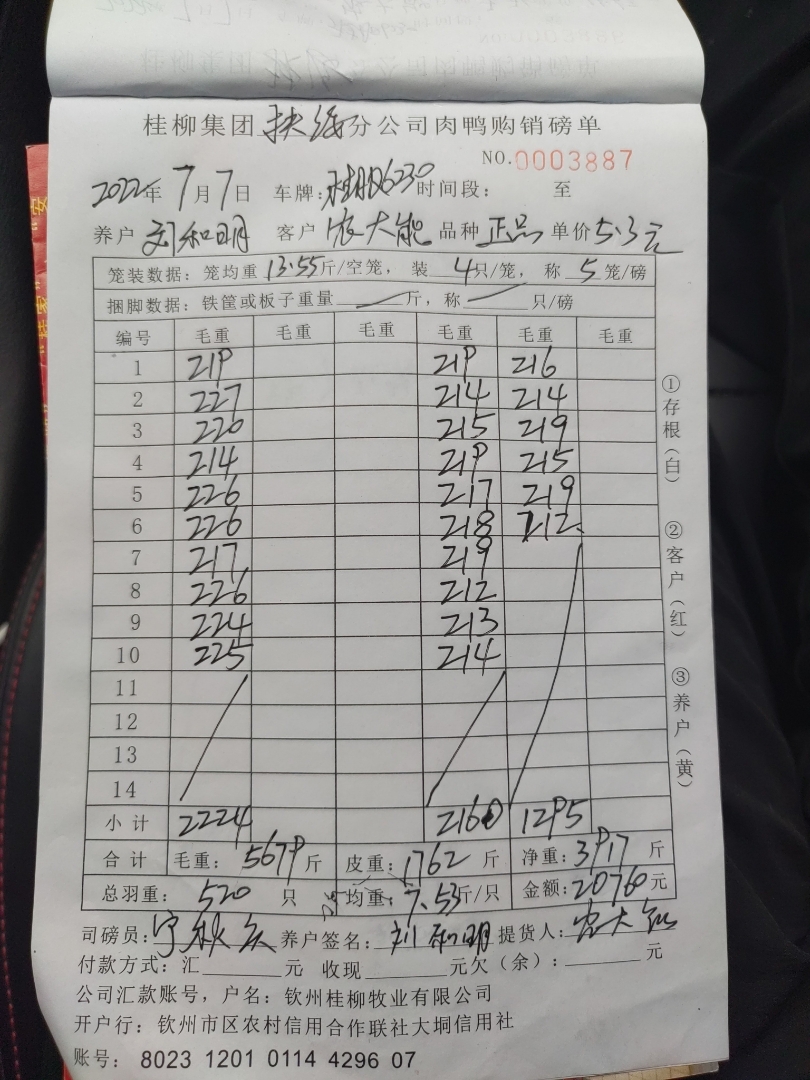 桂柳集团扶绥分公司肉鸭购销磅单
NO.0003887
2022年7月7日 车牌: 6230 时间段: 至
养户 刘和明 客户 农大能 品种 正品 单价 5.3元
笼装数据: 笼均重 13.55 斤/空笼, 装 4 只/笼, 称 5 笼/磅
捆脚数据: 铁筐或板子重量 — 斤, 称 — 只/磅
编号 毛重 毛重 毛重 毛重 毛重 毛重
1 219 219 216
2 227 214 214
3 220 215 219
4 214 219 215
5 226 217 219
6 226 218 212
7 217 219
8 226 212
9 224 213
10 225 214
11
12
13
14
小计 2224 2160 1295
合计 毛重: 5679 斤 皮重: 1762 斤 净重: 3917 斤
总羽重: 520 只 均重: 7.53 斤/只 金额: 20760 元
司磅员: 养户签名: 刘和明 提货人: 农大能
付款方式: 汇 元 收现 元欠(余): 元
公司汇款账号, 户名: 钦州桂柳牧业有限公司
开户行: 钦州市区农村信用合作联社大垌信用社
账号: 8023 1201 0114 4296 07
①存根(白) ②客户(红) ③养户(黄)